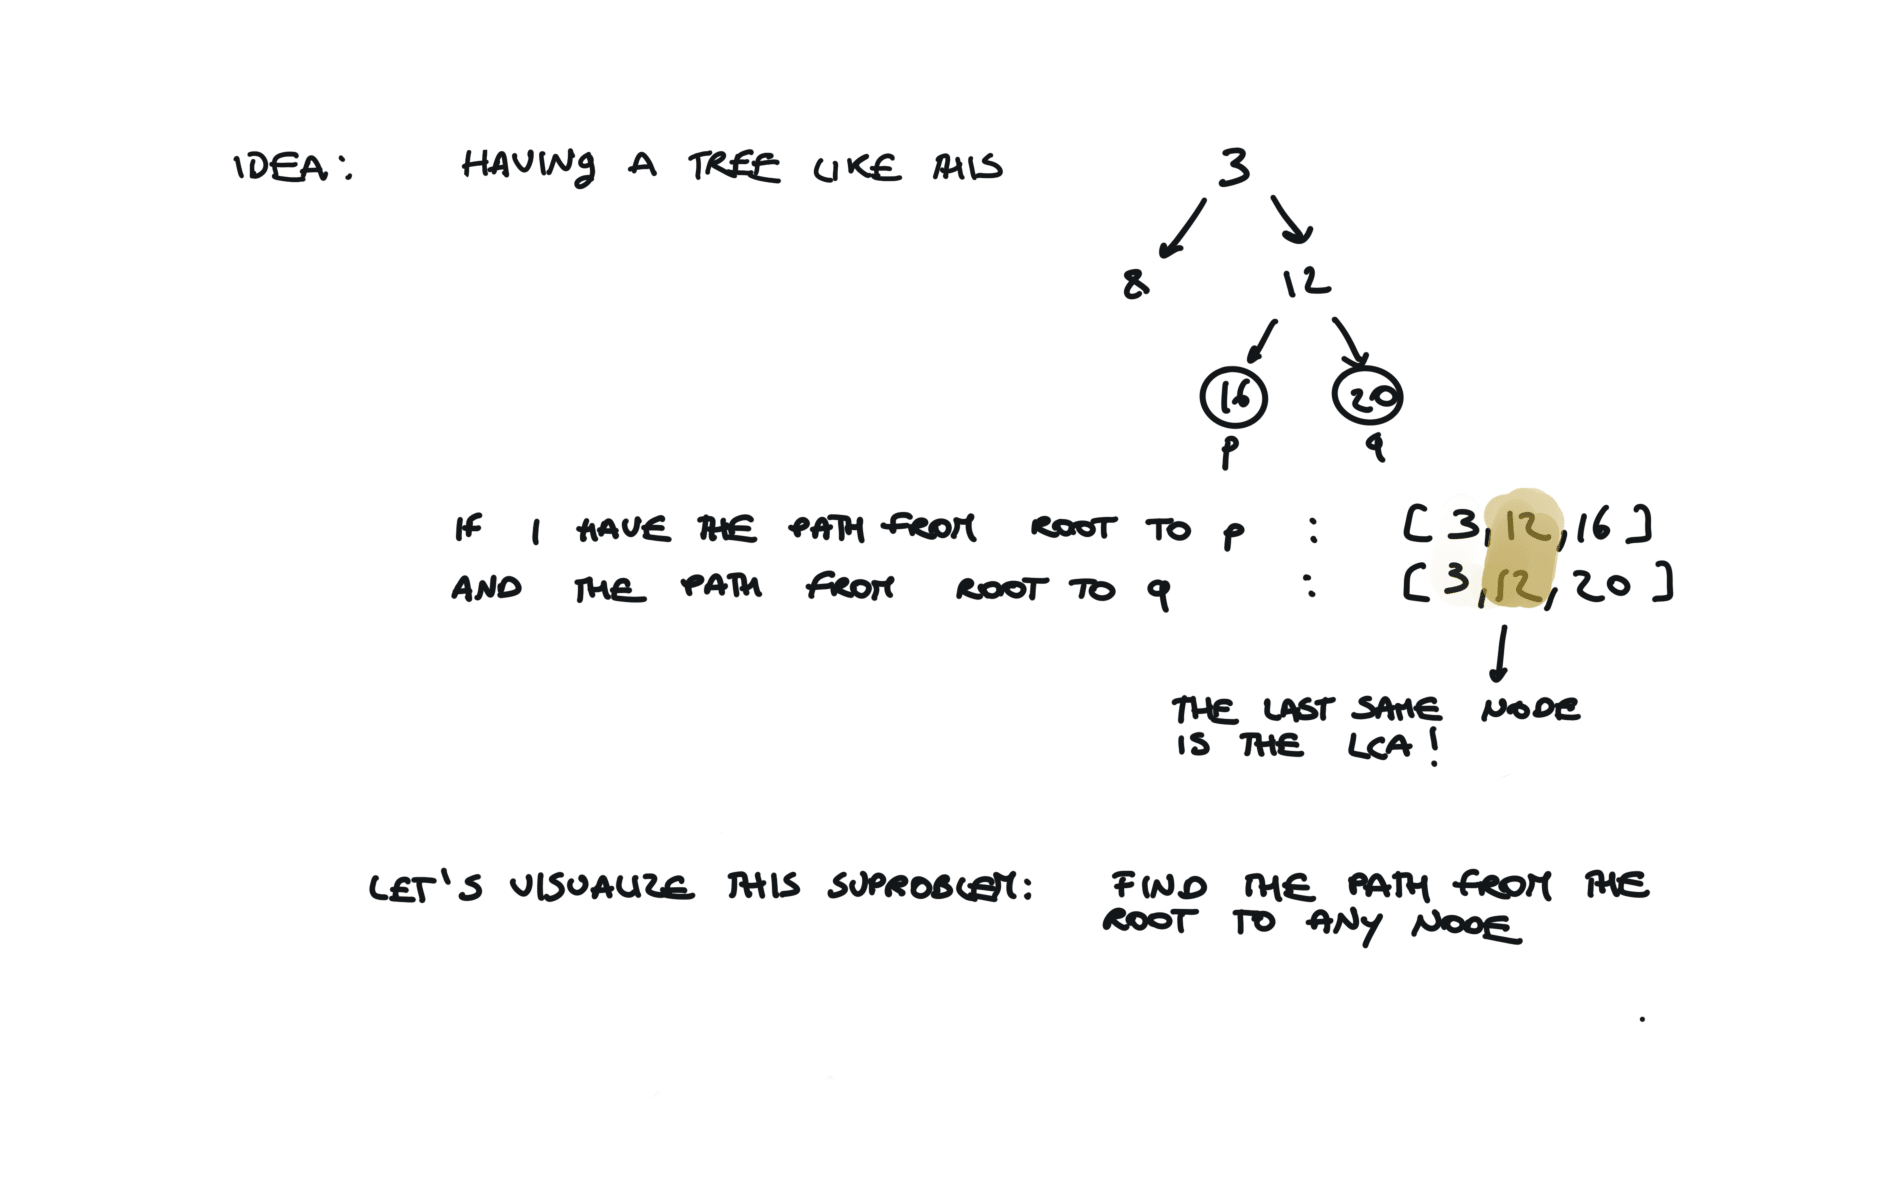 IDEA: HAVING A TREE LIKE THIS 3
8 12
16 20
p q
IF I HAVE THE PATH FROM ROOT TO p : [3,12,16]
AND THE PATH FROM ROOT TO q : [3,12,20]
THE LAST SAME NODE
IS THE LCA!
LET'S VISUALIZE THIS SUPROBLEM: FIND THE PATH FROM THE
ROOT TO ANY NODE